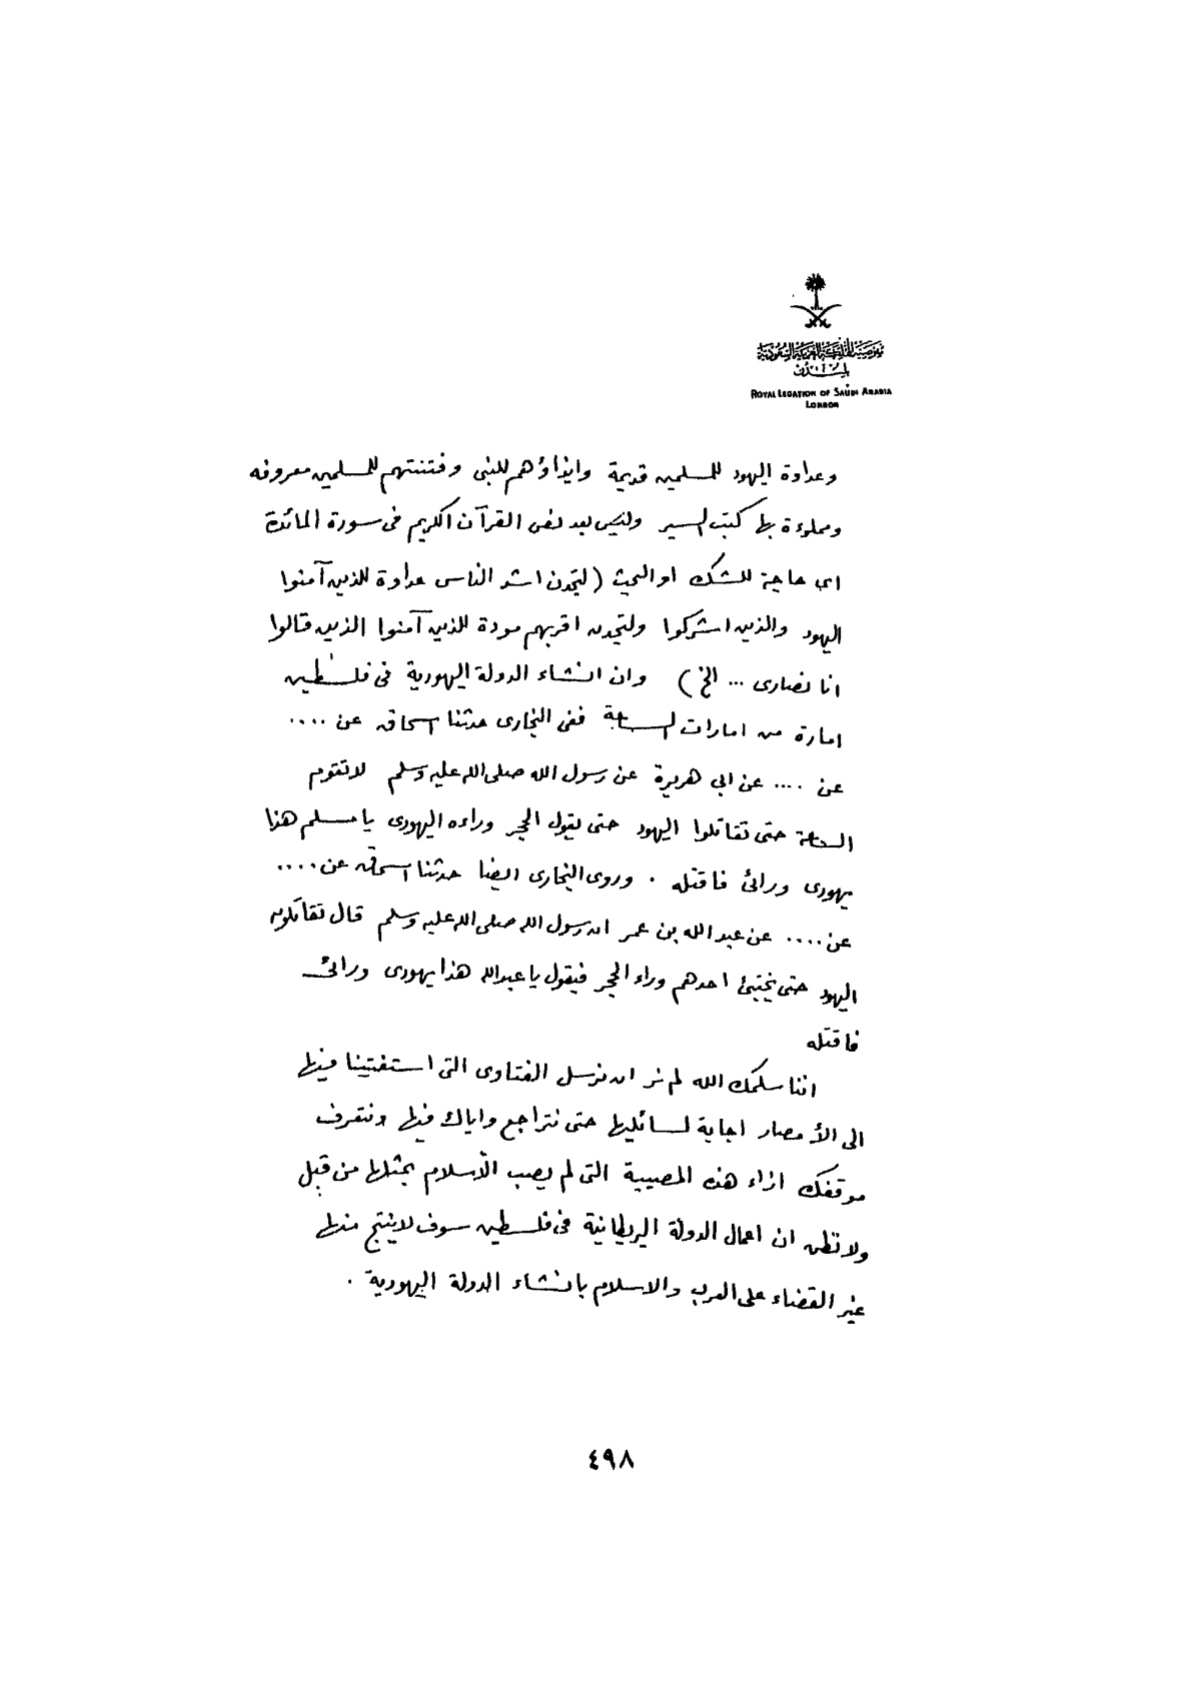 مفوضية المملكة العربية السعودية
بلندن
ROYAL LEGATION OF SAUDI ARABIA
LONDON
وعداوة اليهود للمسلمين قديمة وايذاؤهم للنبى وفتنتهم للمسلمين معروفه
ومملوءة بها كتب السير وليس بعد نص القرآن الكريم فى سورة المائدة
اى حاجة للشك او البحث (لتجدن اشد الناس عداوة للذين آمنوا
اليهود والذين اشركوا ولتجدن اقربهم مودة للذين آمنوا الذين قالوا
انا نصارى ... الخ) وان انشاء الدولة اليهودية فى فلسطين
امارة من امارات الساعة ففى البخارى حدثنا اسحاق عن ....
عن .... عن ابى هريرة عن رسول الله صلى الله عليه وسلم لا تقوم
الساعة حتى تقاتلوا اليهود حتى يقول الحجر وراءه اليهودى يا مسلم هذا
يهودى ورائى فاقتله . وروى البخارى ايضا حدثنا اسحاق عن ....
عن .... عن عبد الله بن عمر ان رسول الله صلى الله عليه وسلم قال تقاتلون
اليهود حتى يختبئ احدهم وراء الحجر فيقول يا عبدالله هذا يهودى ورائى
فاقتله
اننا سلمك الله لم نر ان نرسل الفتاوى التى استفتينا فيها
الى الأمصار اجابة لسائليها حتى نتراجع واياك فيها ونتعرف
موقفك ازاء هذه المصيبة التى لم يصب الأسلام بمثلها من قبل
ولا نظن ان اعمال الدولة البريطانية فى فلسطين سوف لا ينتج منها
غير القضاء على العرب والاسلام بانشاء الدولة اليهودية .
٤٩٨